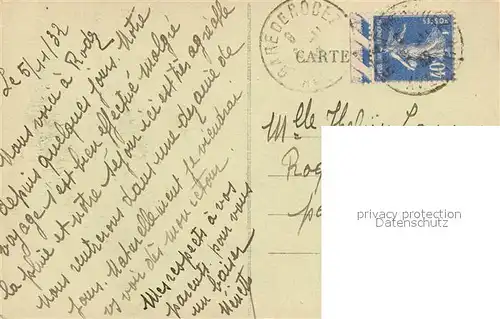 Le 5/11/32
Nous voici à Rodez
depuis quelques jours. Notre
voyage s'est bien effectué malgré
la pluie et notre séjour ici est très agréable
Nous rentrerons dans une dizaine de
jours. Naturellement je viendrai
vs voir dès mon retour.
Mes respects à vos
parents. pour vous
un baiser
GARE DE RODEZ
CARTE
40c
Mlle
privacy protection watermark
www.oldthing.de